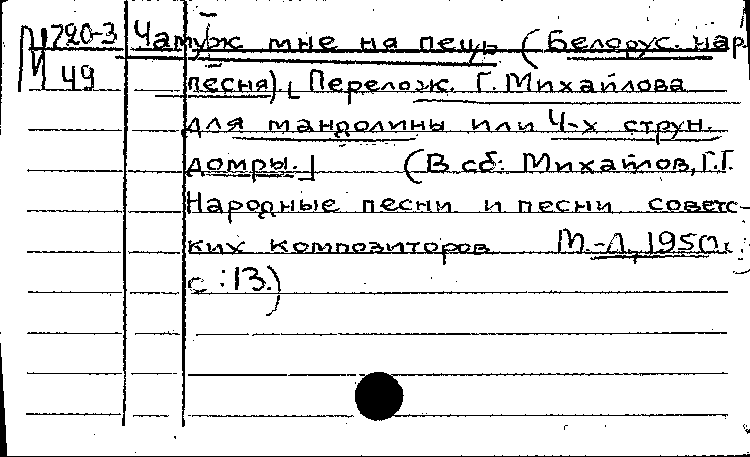 М 720-3 Чамуж мне на пець (Белорус. нар.
49 песня). [Перелож. Г. Михайлова
для мандолины или 4-х струн.
домры.] (В сб: Михайлов, Г.Г.
Народные песни и песни советс-
ких композиторов М.-Л, 1950г.
с :13.)